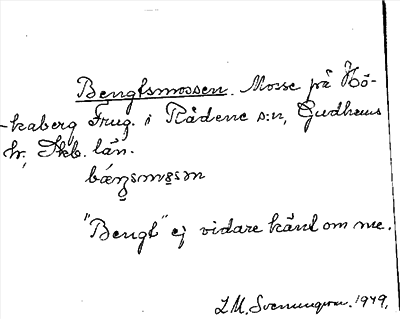 Bengtsmossen. Mosse på Hö-
kaberg Frug. i Rådene s:n, Gudhems
hr, Skb. län.
bæŋsmåsən
"Bengt" ej vidare känt om me.
L.M. Svenungsson. 1949.